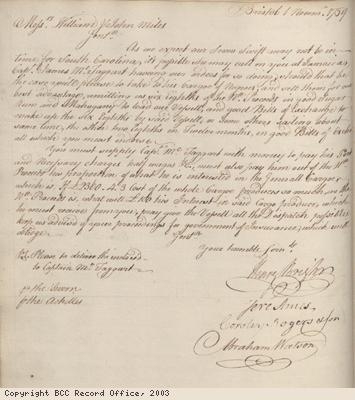 Bristol 1 Novem.r 1759
Mess.rs William & John Miles
Gent.n
As we expect our Snow Swift may not be in
time for South Carolina, its possible she may call on you at Jamaica,
Capt. James McTaggart having our orders for so doing, should that be
the case, you'll please to take to his Cargoe of Negroes, and sell them for our
best advantage, remitting us six Eighths of the Nt. Proceeds in good Sugar
Rum and Mahogany to load our Vessell, and good Bills of Exchange to
make up the six Eighths by said Vessell, or some others sailing about
same time, the other two Eighths in Twelve months, in good Bills of Exche
all which you must insure.
You must supply Capt. McTaggart with money to pay his Port
and Necessary charges half wages &c, must also pay him out of the Nt.
Proceeds his proportion of what he is interested in the general Cargoe
which is, If £ 4.3 Cost of the whole Cargoe produces so much, in the
Nt. Proceeds is, what will £ his Interest in said Cargo produce, which
he must receive from you, pray give the Vessell all the Dispatch possible
keep us advised of your proceedings for government of Insurance, which will
oblige
Gent.n
Your humble Serv.ts
Please to deliver the inclosed
to Captain McTaggart
p the Severn
p the Achilles
Jere Ames
Corsley Rogers & Son
Abraham Watson
Copyright BCC Record Office, 2003